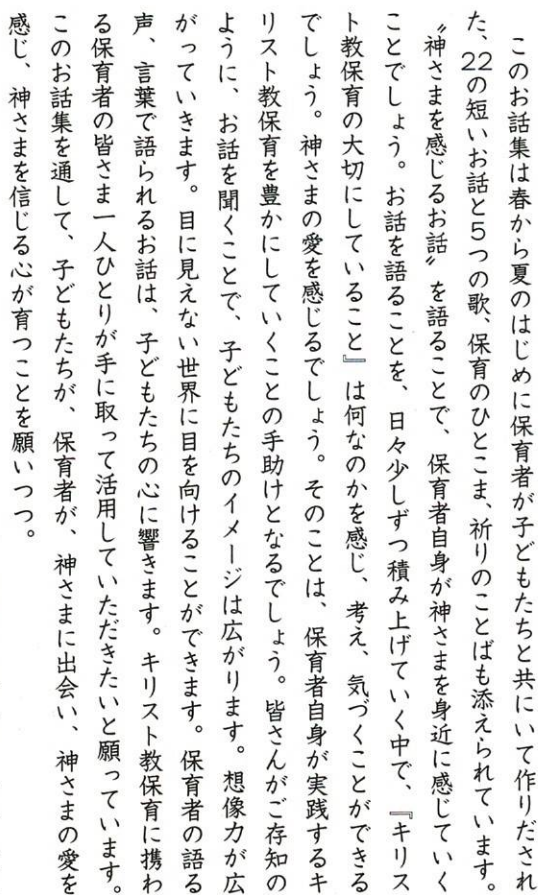 このお話集は春から夏のはじめに保育者が子どもたちと共にいて作りだされ
た、22の短いお話と5つの歌、保育のひとこま、祈りのことばも添えられています。
〝神さまを感じるお話〟を語ることで、保育者自身が神さまを身近に感じていく
ことでしょう。お話を語ることを、日々少しずつ積み上げていく中で、『キリス
ト教保育の大切にしていること』は何なのかを感じ、考え、気づくことができる
でしょう。神さまの愛を感じるでしょう。そのことは、保育者自身が実践するキ
リスト教保育を豊かにしていくことの手助けとなるでしょう。皆さんがご存知の
ように、お話を聞くことで、子どもたちのイメージは広がります。想像力が広
がっていきます。目に見えない世界に目を向けることができます。保育者の語る
声、言葉で語られるお話は、子どもたちの心に響きます。キリスト教保育に携わ
る保育者の皆さま一人ひとりが手に取って活用していただきたいと願っています。
このお話集を通して、子どもたちが、保育者が、神さまに出会い、神さまの愛を
感じ、神さまを信じる心が育つことを願いつつ。